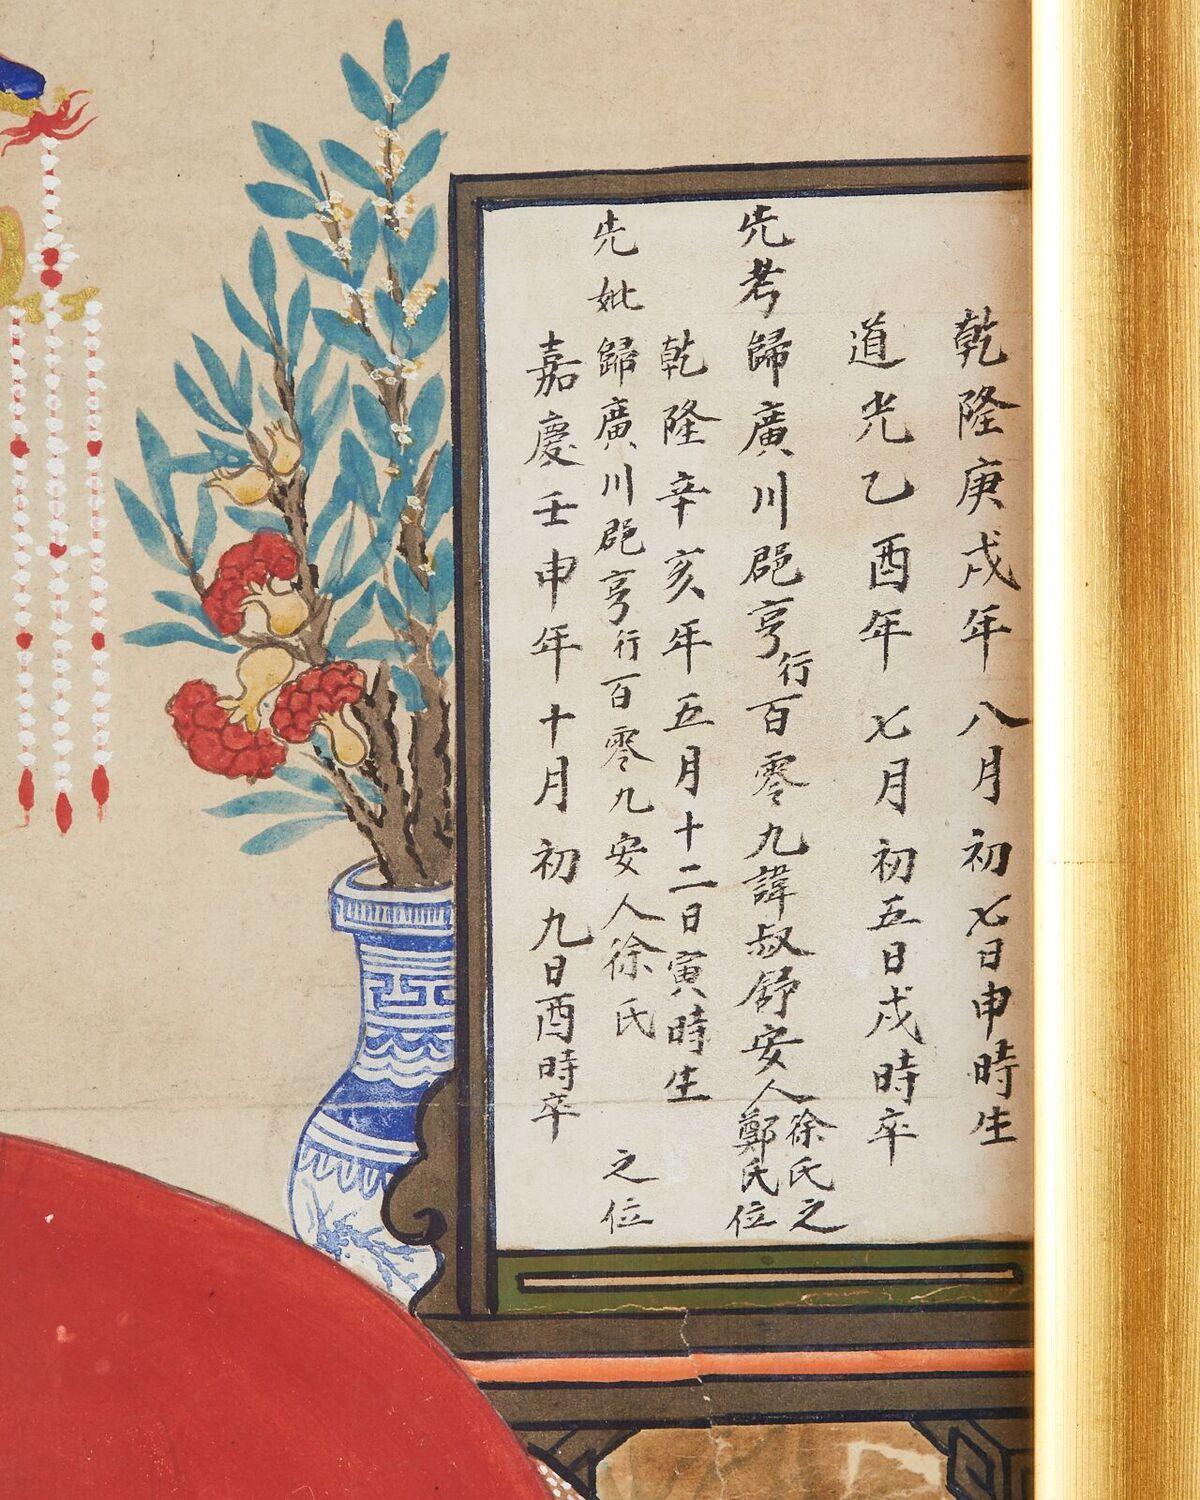 乾隆庚戌年八月初七日申時生
道光乙酉年七月初五日戌時卒
先考歸廣川郡亨行百零九諱叔舒安人徐氏鄭氏之位
乾隆辛亥年五月十二日寅時生
先妣歸廣川郡亨行百零九安人徐氏之位
嘉慶壬申年十月初九日酉時卒